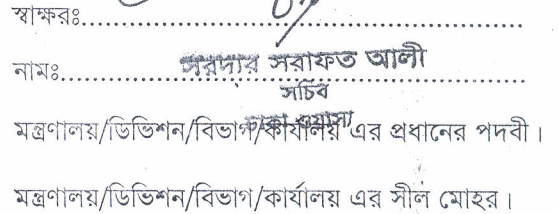 স্বাক্ষরঃ........................................
নামঃ........................................
সরদার সরাফত আলী
সচিব
ঢাকা ওয়াসা
মন্ত্রণালয়/ডিভিশন/বিভাগ/কার্যালয় এর প্রধানের পদবী।
মন্ত্রণালয়/ডিভিশন/বিভাগ/কার্যালয় এর সীল মোহর।